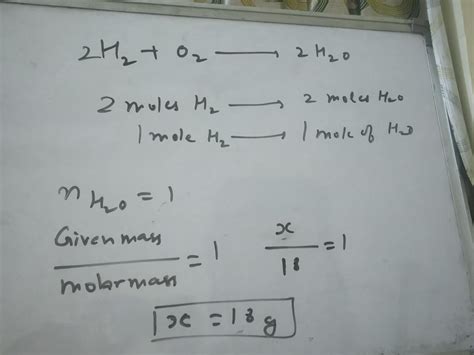 2H₂ + O₂ ⟶ 2H₂O
2 moles H₂ ⟶ 2 moles H₂O
1 mole H₂ ⟶ 1 mole of H₂O
n H₂O = 1
Given mass / molar mass = 1    x / 18 = 1
x = 18 g